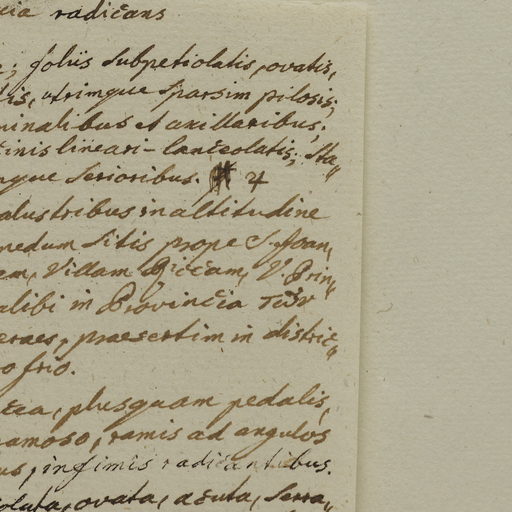 radicans
foliis subpetiolatis, ovatis,
utrimque sparsim pilosis;
minalibus et axillaribus;
lineari-lanceolatis; Sta„
serioribus. ♃
alustribus in altitudine
nedum sitis prope S. Joan„
em, Villam Riccam, V. Prin„
alibi in Provincia
eraes, praesertim in distric„
o frio.
plusquam pedalis,
ramoso, ramis ad angulos
infimis radicantibus.
olata, ovata, acuta, Serra„